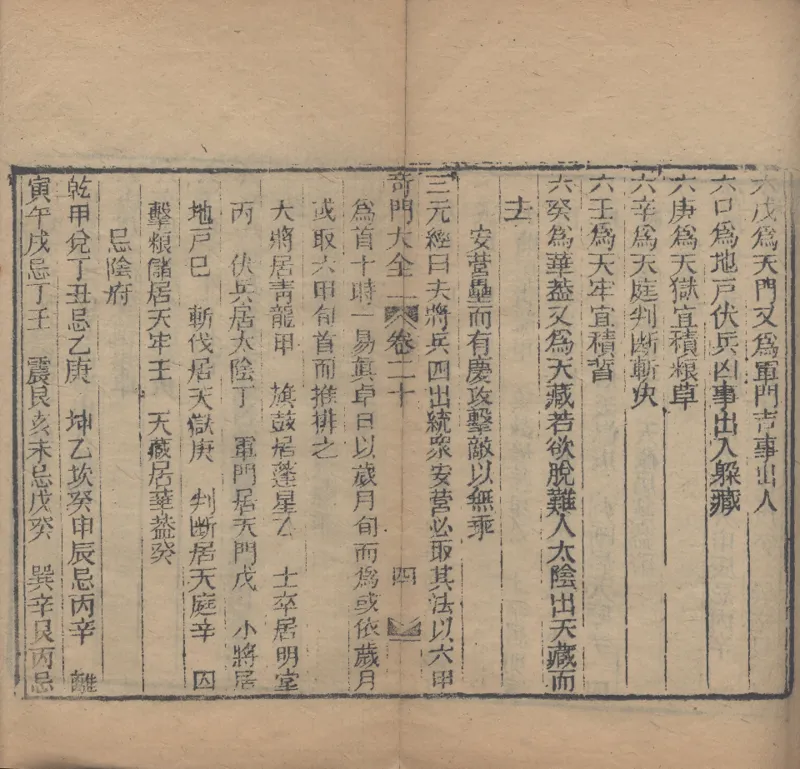 六戊為天門又為軍門吉事出入
六口為地戸伏兵凶事出入躱藏
六庚為天獄宜積粮草
六辛為天庭判断斬决
六壬為天牢宜積蓄
六癸為華盖又為天藏若欲脫難入太陰出天藏而
去
安營壘而有慶攻擊敵以無乖
三元經曰夫將兵四出統衆安營必取其法以六甲
奇門大全 卷二十 四
為首十時一易眞卓曰以歲月旬而為或依歲月
或取六甲旬首而推排之
大將居青龍甲 旗鼓居蓬星乙 士卒居明堂
丙 伏兵居太陰丁 軍門居天門戊 小將居
地戸巳 斬伐居天獄庚 判断居天庭辛 囚
擊粮儲居天牢壬 天藏居華盖癸
忌陰府
乾甲兌丁丑忌乙庚 坤乙坎癸申辰忌丙辛 離
寅午戌忌丁壬 震艮亥未忌戊癸 巽辛艮丙忌